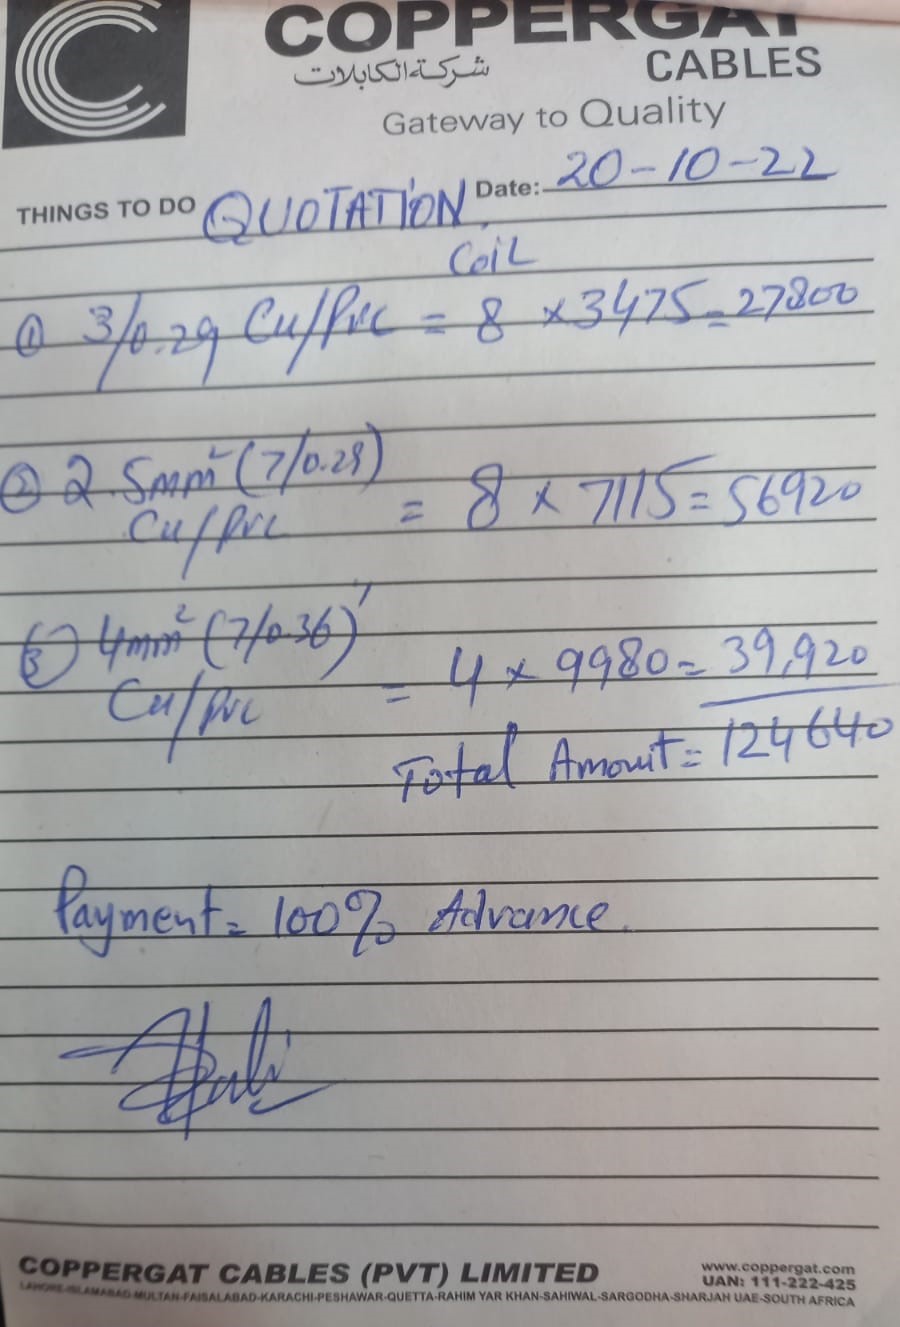 COPPERGAT
شركة الكابلات CABLES
Gateway to Quality
THINGS TO DO QUOTATION Date: 20-10-22
Coil
① 3/0.29 Cu/Pvc = 8 × 3475 = 27800
② 2.5mm² (7/0.29)
Cu/Pvc = 8 × 7115 = 56920
③ 4mm² (7/0.36)
Cu/Pvc = 4 × 9980 = 39,920
Total Amount = 124640
Payment = 100% Advance.
COPPERGAT CABLES (PVT) LIMITED
www.coppergat.com
UAN: 111-222-425
LAHORE-ISLAMABAD-MULTAN-FAISALABAD-KARACHI-PESHAWAR-QUETTA-RAHIM YAR KHAN-SAHIWAL-SARGODHA-SHARJAH UAE-SOUTH AFRICA